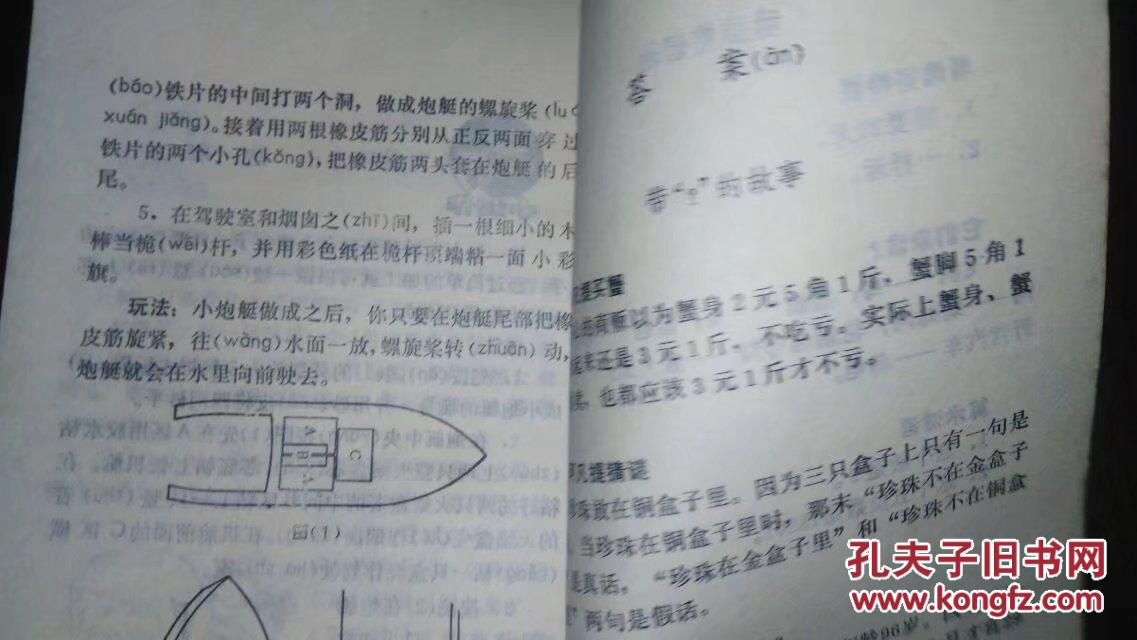 (báo)铁片的中间打两个洞，做成炮艇的螺旋桨(lu
xuán jiǎng)。接着用两根橡皮筋分别从正反两面穿过
铁片的两个小孔(kǒng)，把橡皮筋两头套在炮艇的后
尾。
5．在驾驶室和烟囱之(zhī)间，插一根细小的木
棒当桅(wéi)杆，并用彩色纸在桅杆顶端粘一面小彩
旗。
玩法：小炮艇做成之后，你只要在炮艇尾部把橡
皮筋旋紧，往(wǎng)水面一放，螺旋桨转(zhuǎn)动，
炮艇就会在水里向前驶去。
A
B
A
C
图(1)
答 案(àn)
带“？”的故事
提买蟹
以为蟹身2元5角1斤、蟹脚5角1
来还是3元1斤，不吃亏。实际上蟹身、蟹
，也都应该3元1斤才不亏。
凡提猜谜
珍珠放在铜盒子里。因为三只盒子上只有一句是
当珍珠在铜盒子里时，那末“珍珠不在金盒子
是真话，“珍珠在金盒子里”和“珍珠不在铜盒
”两句是假话。
孔夫子旧书网
www.kongfz.com